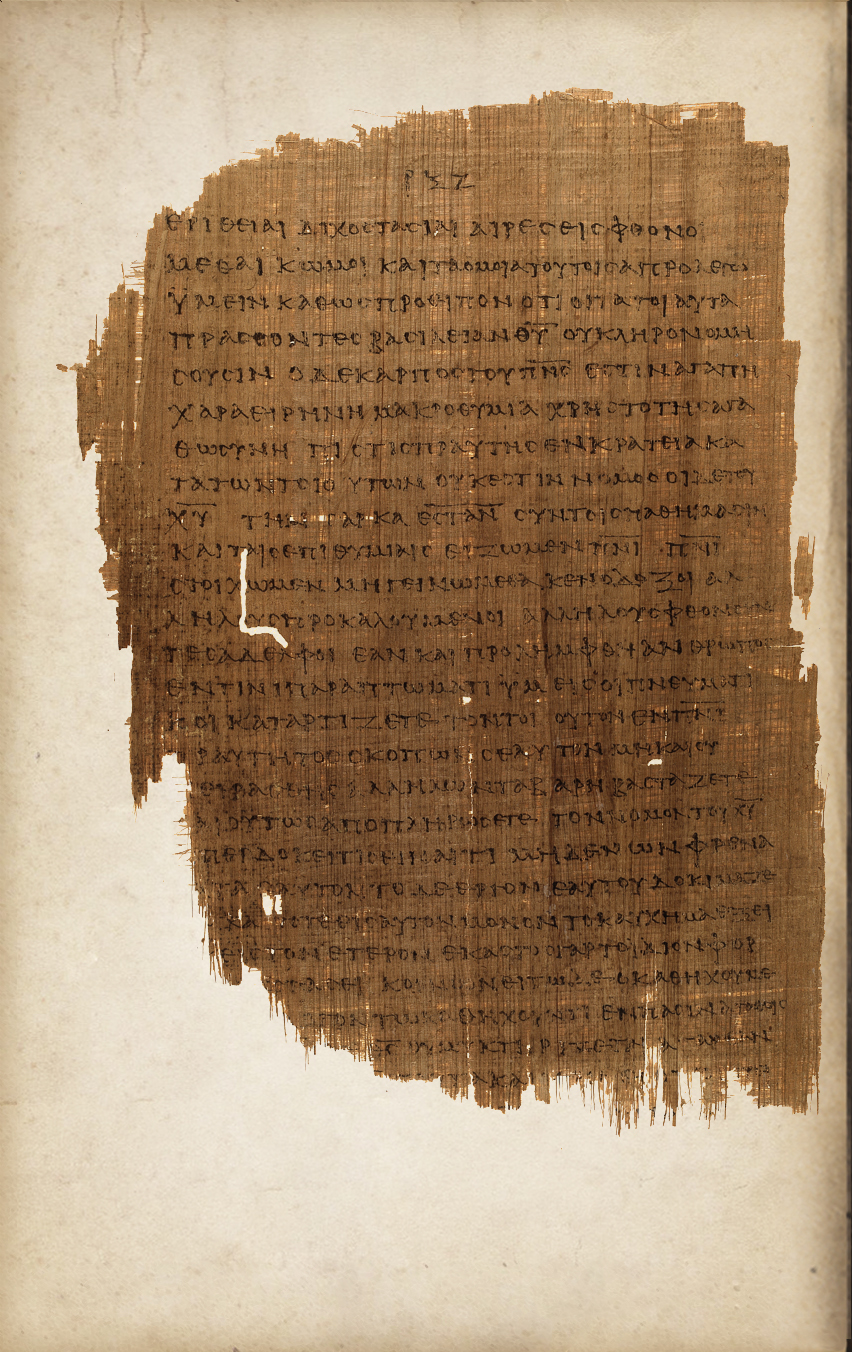 ΡΞΖ
ΕΡΙΘΕΙΑΙ ΔΙΧΟΣΤΑΣΙΑΙ ΑΙΡΕΣΕΙΣ ΦΘΟΝΟΙ
ΜΕΘΑΙ ΚΩΜΟΙ ΚΑΙ ΤΑ ΟΜΟΙΑ ΤΟΥΤΟΙΣ Α ΠΡΟΛΕΓΩ
ΥΜΕΙΝ ΚΑΘΩΣ ΠΡΟΕΙΠΟΝ ΟΤΙ ΟΙ ΤΑ ΤΟΙΑΥΤΑ
ΠΡΑΣΣΟΝΤΕΣ ΒΑΣΙΛΕΙΑΝ ΘΥ ΟΥ ΚΛΗΡΟΝΟΜΗ
ΣΟΥΣΙΝ Ο ΔΕ ΚΑΡΠΟΣ ΤΟΥ ΠΝΣ ΕΣΤΙΝ ΑΓΑΠΗ
ΧΑΡΑ ΕΙΡΗΝΗ ΜΑΚΡΟΘΥΜΙΑ ΧΡΗΣΤΟΤΗΣ ΑΓΑ
ΘΩΣΥΝΗ ΠΙΣΤΙΣ ΠΡΑΥΤΗΣ ΕΝΚΡΑΤΕΙΑ ΚΑ
ΤΑ ΤΩΝ ΤΟΙΟΥΤΩΝ ΟΥΚ ΕΣΤΙΝ ΝΟΜΟΣ ΟΙ ΔΕ ΤΟΥ
ΧΥ ΤΗΝ ΣΑΡΚΑ ΕΣΤΑΝ ΣΥΝ ΤΟΙΣ ΠΑΘΗΜΑΣΙΝ
ΚΑΙ ΤΑΙΣ ΕΠΙΘΥΜΙΑΙΣ ΕΙ ΖΩΜΕΝ ΠΝΙ ΠΝΙ
ΣΤΟΙΧΩΜΕΝ ΜΗ ΓΕΙΝΩΜΕΘΑ ΚΕΝΟΔΟΞΟΙ ΑΛ
ΛΗΛΟΥΣ ΠΡΟΚΑΛΟΥΜΕΝΟΙ ΑΛΛΗΛΟΥΣ ΦΘΟΝΟΥΝ
ΤΕΣ ΑΔΕΛΦΟΙ ΕΑΝ ΚΑΙ ΠΡΟΛΗΜΦΘΗ ΑΝΘΡΩΠΟΣ
ΕΝ ΤΙΝΙ ΠΑΡΑΠΤΩΜΑΤΙ ΥΜΕΙΣ ΟΙ ΠΝΕΥΜΑΤΙ
ΚΟΙ ΚΑΤΑΡΤΙΖΕΤΕ ΤΟΝ ΤΟΙΟΥΤΟΝ ΕΝ ΠΝΙ
ΠΡΑΥΤΗΤΟΣ ΣΚΟΠΩΝ ΣΕΑΥΤΟΝ ΜΗ ΚΑΙ ΣΥ
ΠΕΙΡΑΣΘΗΣ ΑΛΛΗΛΩΝ ΤΑ ΒΑΡΗ ΒΑΣΤΑΖΕΤΕ
ΚΑΙ ΟΥΤΩΣ ΑΠΟΠΛΗΡΩΣΕΤΕ ΤΟΝ ΝΟΜΟΝ ΤΟΥ ΧΥ
ΕΙ ΓΑΡ ΔΟΚΕΙ ΤΙΣ ΕΙΝΑΙ ΤΙ ΜΗΔΕΝ ΩΝ ΦΡΕΝΑ
ΠΑΤΑ ΕΑΥΤΟΝ ΤΟ ΔΕ ΕΡΓΟΝ ΕΑΥΤΟΥ ΔΟΚΙΜΑΖΕ
ΚΑΙ ΤΟΤΕ ΕΙΣ ΕΑΥΤΟΝ ΜΟΝΟΝ ΤΟ ΚΑΥΧΗΜΑ ΕΞΕΙ
ΕΙΣ ΤΟΝ ΕΤΕΡΟΝ ΕΚΑΣΤΟΣ ΓΑΡ ΤΟ ΙΔΙΟΝ ΦΟΡ
ΚΟΙΝΩΝΕΙΤΩ ΔΕ Ο ΚΑΤΗΧΟΥΜΕ
ΤΟΝ ΤΩ ΚΑΤΗΧΟΥΝΤΙ ΕΝ ΠΑΣΙΝ ΑΓΑΘΟΙΣ